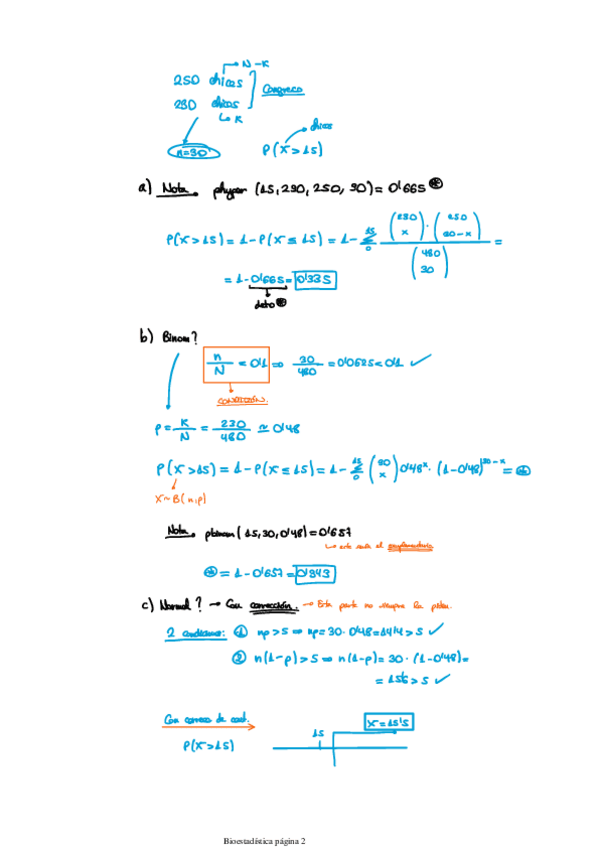 N-K
250 chicas
Congreso
230 chicos
K
n=30
P(X>15)
chicos
a) Nota. phyper (15,230,250,30)=0'665 *
P(X>15)=1-P(X≤15)=1-∑ 15 0 (230 x)·(250 30-x) / (480 30) =
=1-0'665=0'335
dato *
b) Binom?
n/N <0'1 ⇒ 30/480 =0'0625<0'1 ✓
CONDICIÓN.
p=K/N=230/480≃0'48
P(X>15)=1-P(X≤15)=1-∑ 15 0 (30 x) 0'48^x·(1-0'48)^30-x=*
X~B(n,p)
Nota. pbinom(15,30,0'48)=0'657
este sería el complementario
*=1-0'657=0'343
c) Normal? → Con corrección. → Esta parte no siempre la piden.
2 condiciones: ① np>5 ⇒ np=30·0'48=14'4>5 ✓
② n(1-p)>5 ⇒ n(1-p)=30·(1-0'48)=
=15'6>5 ✓
Con correcc de cont.
X=15'5
15
P(X>15)
Bioestadística página 2